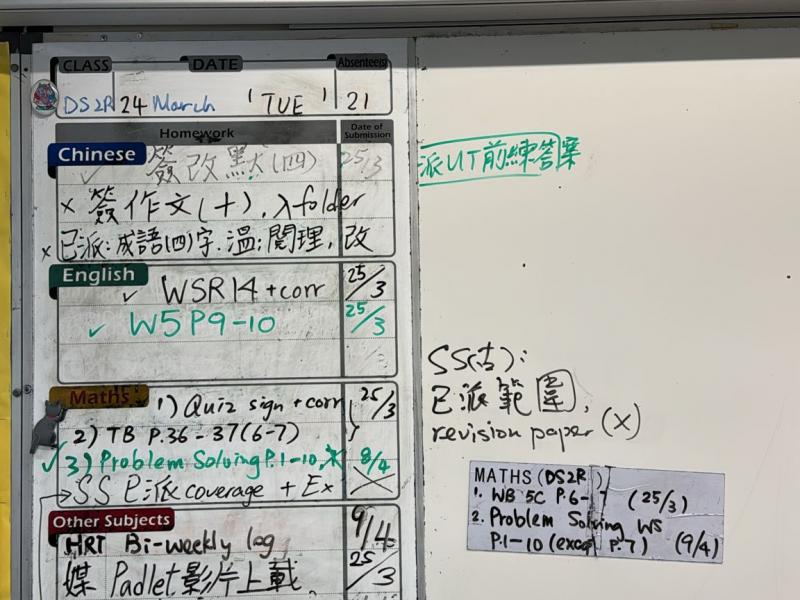 CLASS DATE Absentee(s)
DS2R 24 March (TUE) 21
Homework Date of Submission
Chinese ✓ 簽改默(四) 25/3
× 簽作文(十), 入folder
× 已派: 成語(四)字. 溫: 閱理, 改
English ✓ WSR14 + corr 25/3
✓ W5 P9-10 25/3
Maths 1) Quiz sign + corr 25/3
2) TB P.36-37(6-7)
✓ 3) Problem Solving P.1-10, 8/4
SS 已派 coverage + Ex
Other Subjects
HRT Bi-weekly log 9/4
媒 Padlet 影片上載 25/3
派UT前練答案
SS(古):
已派範圍,
revision paper (X)
MATHS (DS2R)
1. WB 5C P.6-7 (25/3)
2. Problem Solving WS
P.1-10 (except P.7) (9/4)